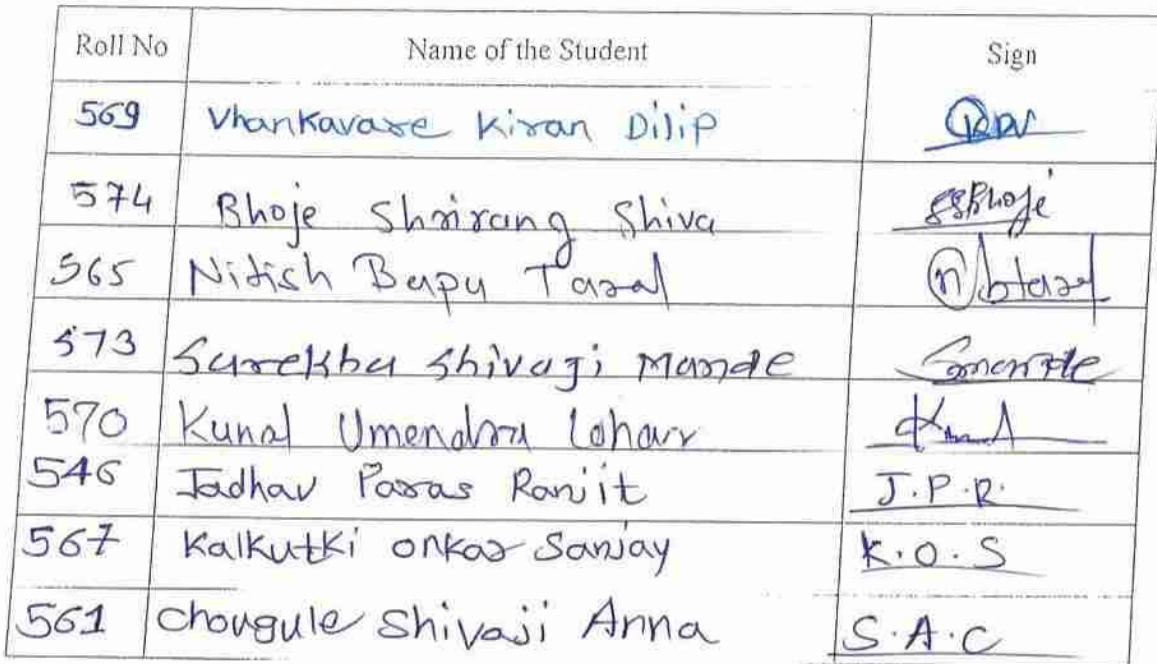 Roll No Name of the Student Sign
569 Vhankavare Kiran Dilip
574 Bhoje Shrirang Shiva SSBhoje
565 Nitish Bapu Taral
573 Surekha Shivaji Mande Smande
570 Kunal Umendra Lohar
546 Jadhav Paras Ranjit J.P.R.
567 Kalkutki Onkar Sanjay K.O.S
561 Chougule Shivaji Anna S.A.C